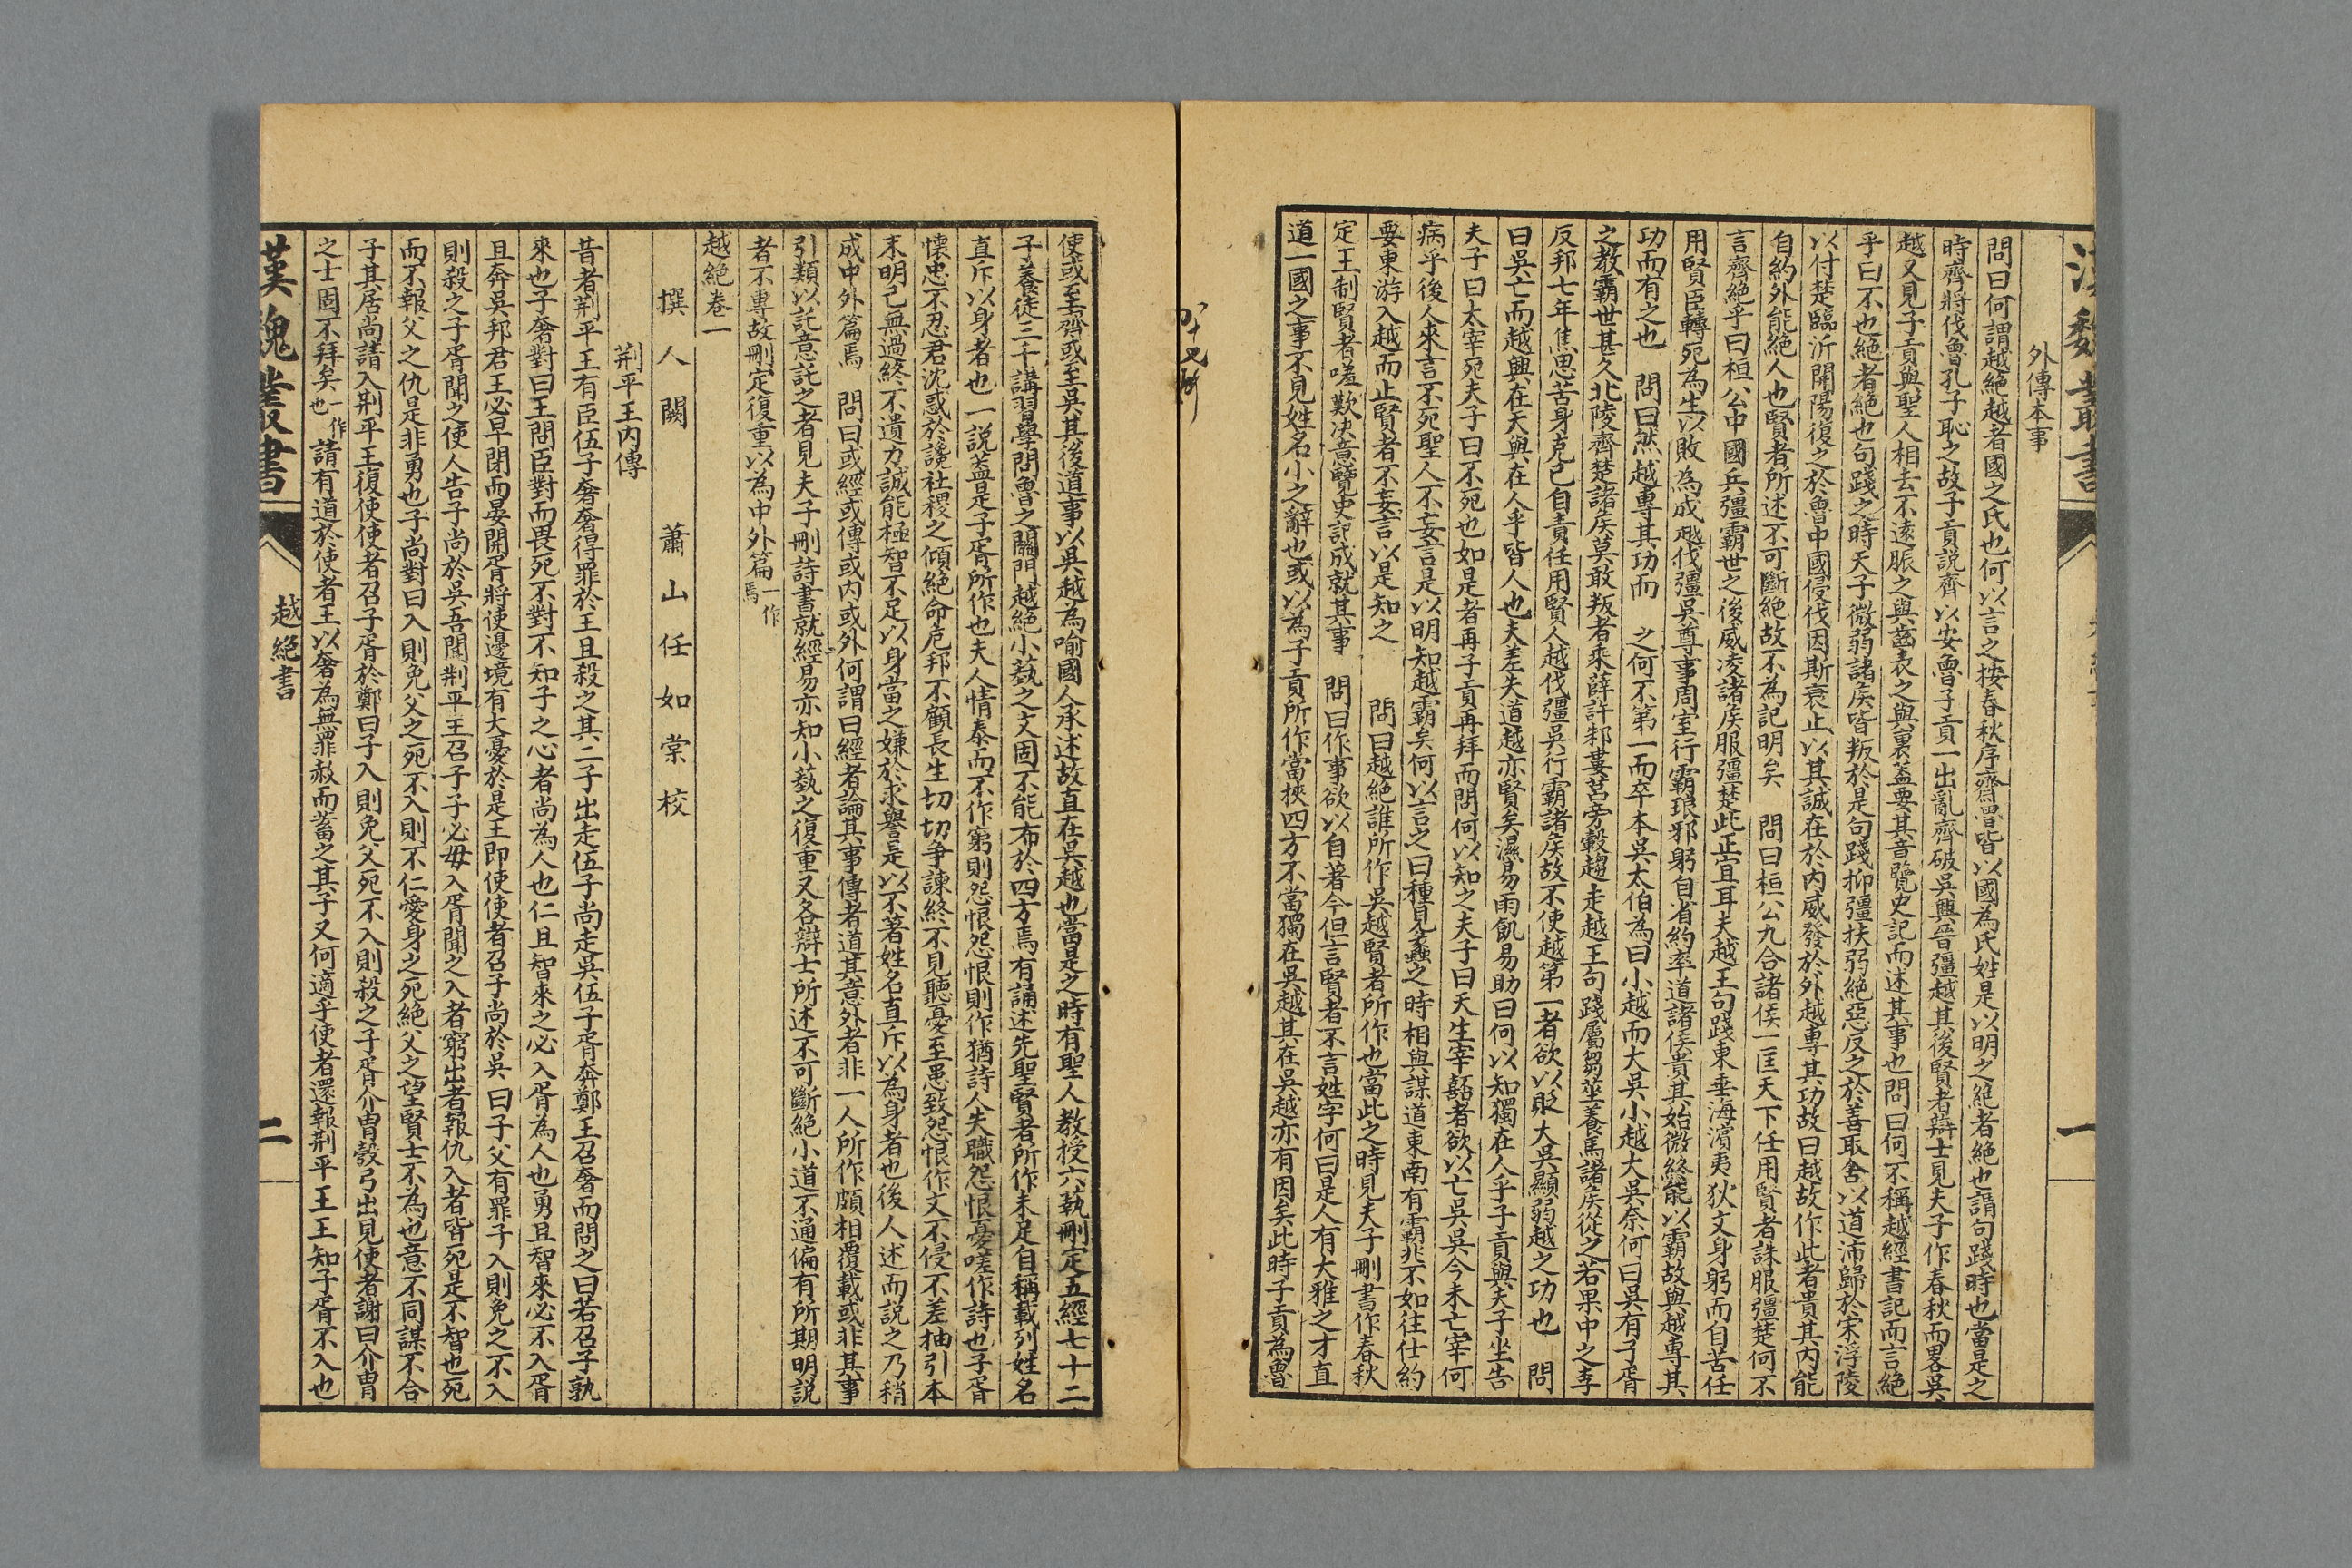 外傳本事
問曰何謂越絕越者國之氏也何以言之按春秋序齊魯皆以國為氏姓是以明之絕者絕也謂句踐時也當是之
時齊將伐魯孔子恥之故子貢說齊以安魯子貢一出亂齊破吳興晉彊越其後賢者辯士見夫子作春秋而畧吳
越又見子貢與聖人相去不遠脤之與齒表之與裏蓋要其意覽史記而述其事也問曰何不稱越經書記而言絕
乎曰不也絕者絕也句踐之時天子微弱諸矦皆叛於是句踐抑彊扶弱絕惡反之於善取舍以道沛歸於宋浮陵
以付楚臨沂開陽復之於魯中國侵伐因斯衰止以其誠在於內威發於外越專其功故曰越故作此者貴其內能
自約外能絕人也賢者所述不可斷絕故不為記明矣　問曰桓公九合諸侯一匡天下任用賢者誅服彊楚何不
言齊絕乎曰桓公中國兵彊霸世之後威凌諸矦服彊楚此正宜耳夫越王句踐東垂海濵夷狄文身躬而自苦任
用賢臣轉死為生以敗為成越伐彊吳尊事周室行霸琅邪躬自省約率道諸侯貴其始微終能以霸故與越專其
功而有之也　問曰然越專其功而　之何不第一而卒本吳太伯為曰小越而大吳小越大吳奈何曰吳有子胥
之教霸世甚久北陵齊楚諸矦莫敢叛者乘薛許邾婁莒旁轂趨走越王句踐屬芻莝養馬諸矦從之若果中之李
反邦七年焦思苦身克己自責任用賢人越伐彊吳行霸諸矦故不使越第一者欲以貶大吳顯弱越之功也　問
曰吳亡而越興在天與在人乎皆人也夫差失道越亦賢矣濕易雨飢易助曰何以知獨在人乎子貢與夫子坐告
夫子曰太宰死夫子曰不死也如是者再子貢再拜而問何以知之夫子曰天生宰嚭者欲以亡吳吳今未亡宰何
病乎後人來言不死聖人不妄言是以明知越霸矣何以言之曰種見蠡之時相與謀道東南有霸兆不如往仕約
要東游入越而止賢者不妄言以是知之　問曰越絕誰所作吳越賢者所作也當此之時見夫子刪書作春秋
定王制賢者嗟歎決意覽史記成就其事　問曰作事欲以自著今但言賢者不言姓字何曰是人有大雅之才直
道一國之事不見姓名小之辭也或以為子貢所作當挾四方不當獨在吳越其在吳越亦有因矣此時子貢為魯
一
使或至齊或至吳其後道事以吳越為喻國人承述故直在吳越也當是之時有聖人教授六執刪定五經七十二
子養徒三千講習學問魯之闕門越絕小藝之文固不能布於四方焉有誦述先聖賢者所作未足自稱載列姓名
直斥以身者也一說葢是子胥所作也夫人情泰而不作窮則怨恨怨恨則作猶詩人失職怨恨憂嗟作詩也子胥
懷忠不忍君沈惑於讒社稷之傾絕命危邦不顧長生切切争諫終不見聽憂至患致怨恨作文不侵不差抽引本
末明己無過終不遺力誠能極智不足以身當之嫌於求譽是以不著姓名直斥以為身者也後人述而說之乃稍
成中外篇焉　問曰或經或傳或內或外何謂曰經者論其事傳者道其意外者非一人所作頗相覆載或非其事
引類以託意託之者見夫子刪詩書就經易亦知小藝之復重又各辯士所述不可斷絕小道不通偏有所期明說
者不專故刪定復重以為中外篇一作焉
越絕卷一
撰人闕　蕭山任如棠校
荆平王內傳
昔者荆平王有臣伍子奢奢得罪於王且殺之其二子出走伍子尚走吳伍子胥奔鄭王召奢而問之曰若召子孰
來也子奢對曰王問臣對而畏死不對不知子之心者尚為人也仁且智來之必入胥為人也勇且智來必不入胥
且奔吳邦君王必早閉而晏開胥將使邊境有大憂於是王即使使者召子尚於吳曰子父有罪子入則免之不入
則殺之子胥聞之使人告子尚於吳吾聞荆平王召子子必毋入胥聞之入者窮出者報仇入者皆死是不智也死
而不報父之仇是非勇也子尚對曰入則免父之死不入則不仁愛身之死絕父之望賢士不為也意不同謀不合
子其居尚請入荆平王復使使者召子胥於鄭曰子入則免父死不入則殺之子胥介冑彀弓出見使者謝曰介冑
之士固不拜矣一作也請有道於使者王以奢為無罪赦而蓄之其子又何適乎使者還報荆平王王知子胥不入也
漢魏叢書
越絕書
二